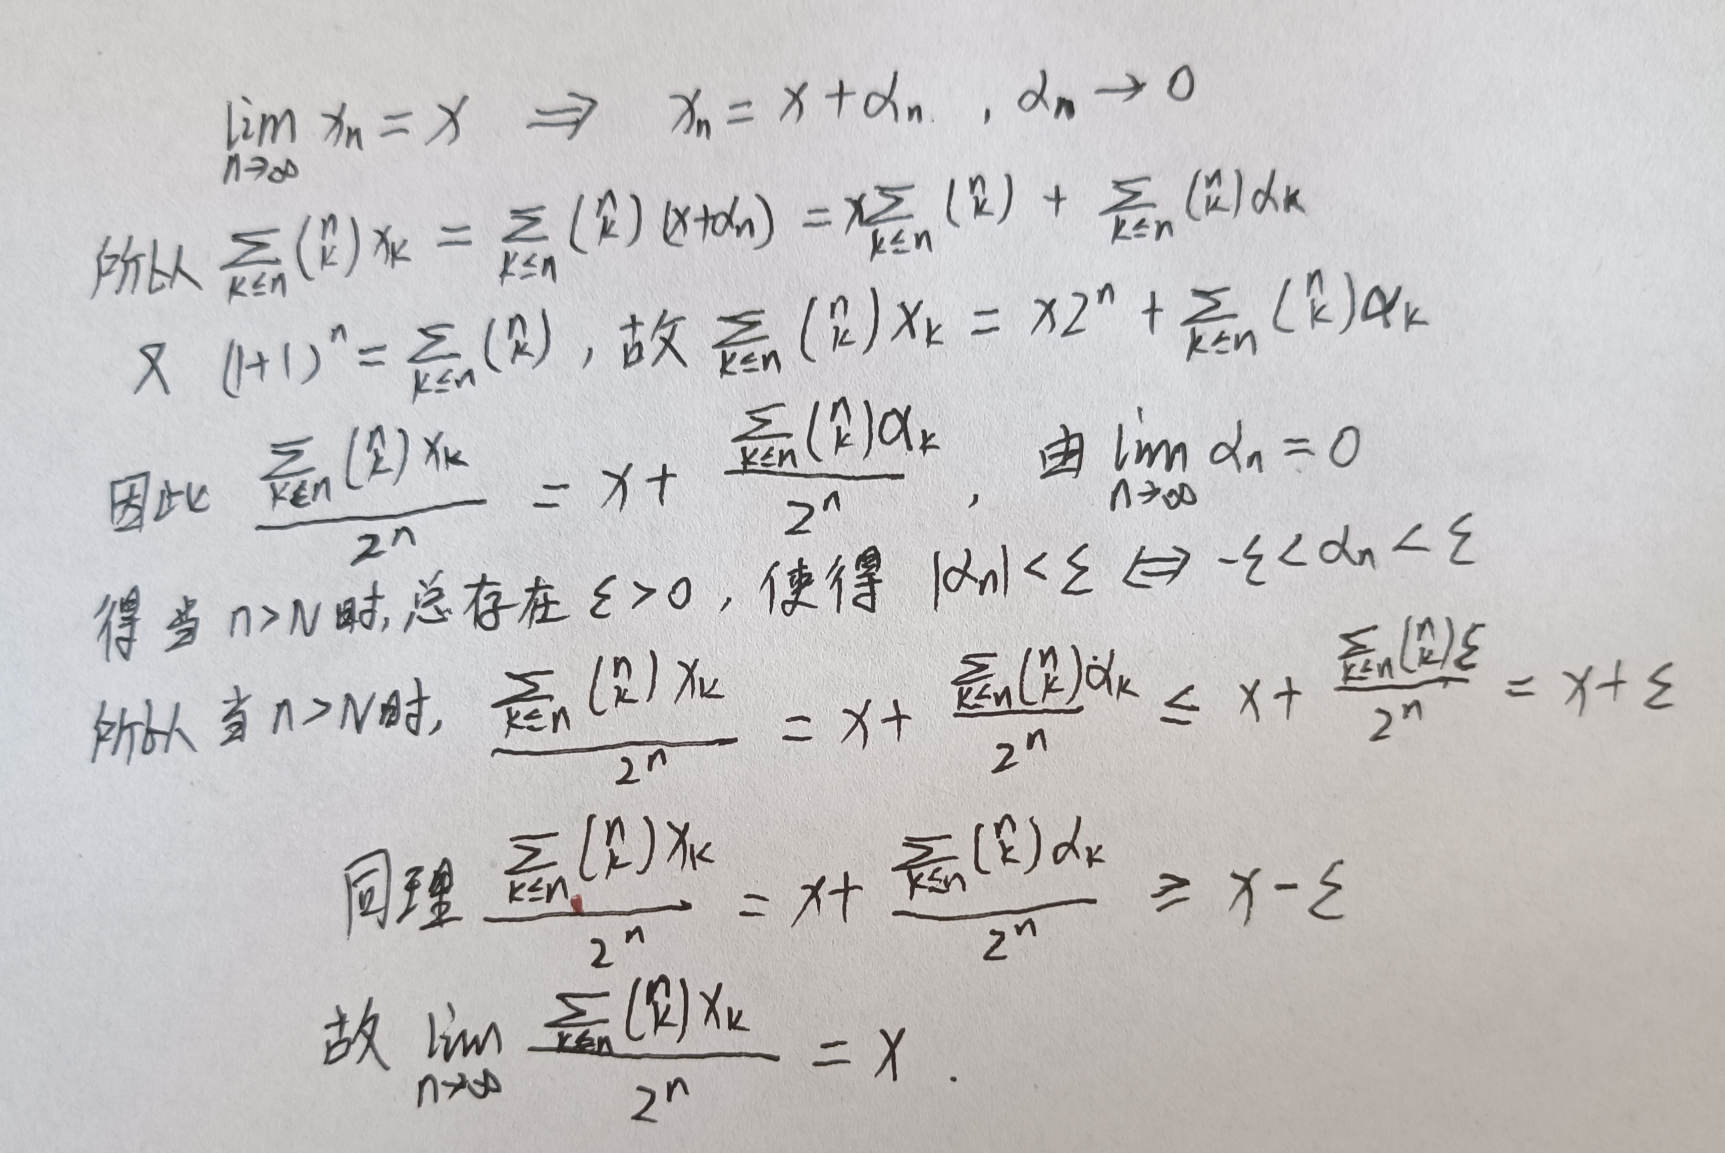 lim_{n→∞} x_n = x ⇒ x_n = x + α_n. , α_n → 0
所以 ∑_{k≤n} (n k) x_k = ∑_{k≤n} (n k) (x+α_n) = x∑_{k≤n} (n k) + ∑_{k≤n} (n k) α_k
又 (1+1)^n = ∑_{k≤n} (n k) , 故 ∑_{k≤n} (n k) x_k = x2^n + ∑_{k≤n} (n k) α_k
因此 ∑_{k≤n} (n k) x_k / 2^n = x + ∑_{k≤n} (n k) α_k / 2^n , 由 lim_{n→∞} α_n = 0
得当 n>N 时, 总存在 ε>0 , 使得 |α_n| < ε ⇔ -ε < α_n < ε
所以当 n>N时, ∑_{k≤n} (n k) x_k / 2^n = x + ∑_{k≤n} (n k) α_k / 2^n ≤ x + ∑_{k≤n} (n k) ε / 2^n = x + ε
同理 ∑_{k≤n} (n k) x_k / 2^n = x + ∑_{k≤n} (n k) α_k / 2^n ≥ x - ε
故 lim_{n→∞} ∑_{k≤n} (n k) x_k / 2^n = x .